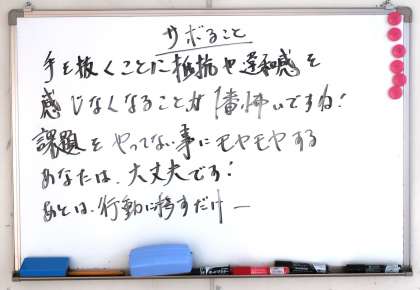 サボること
手を抜くことに抵抗や違和感を
感じなくなることが1番怖いですね!
課題をやってない事にモヤモヤする
あなたは、大丈夫です!
あとは、行動に移すだけー